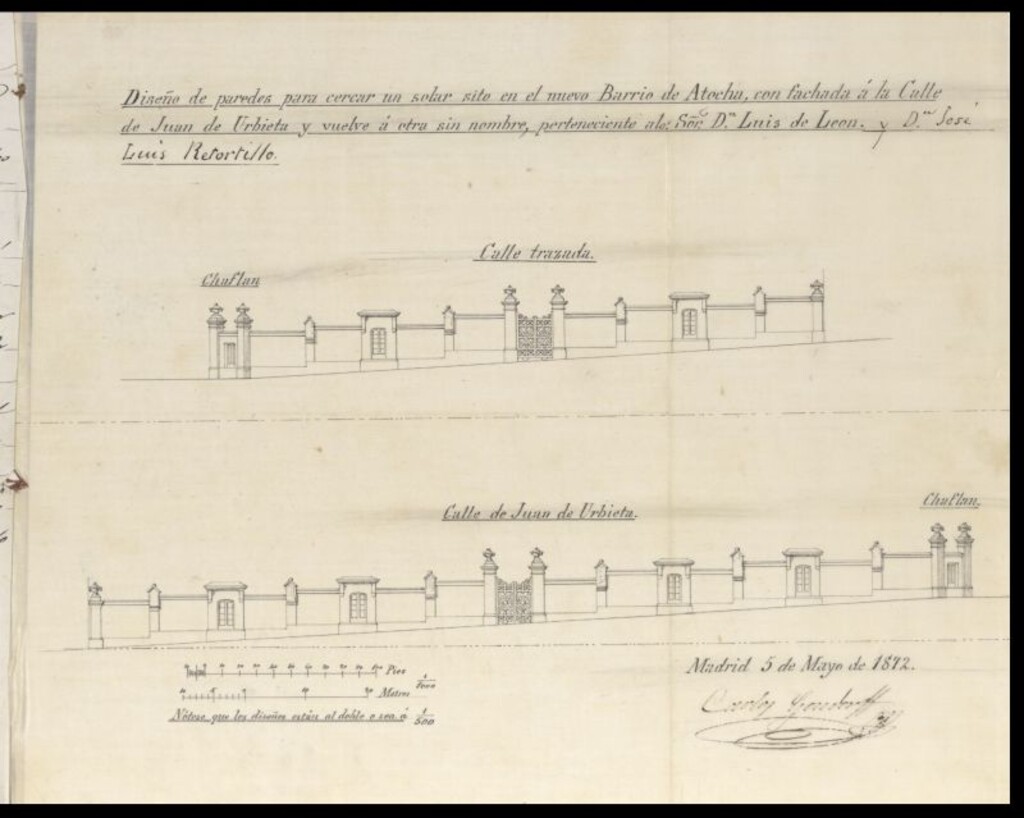 Diseño de paredes para cercar un solar sito en el nuevo Barrio de Atocha, con fachada á la Calle
de Juan de Urbieta y vuelve á otra sin nombre, perteneciente a los Sres. Dn Luis de Leon. y Dn José
Luis Retortillo.
Calle trazada.
Chaflan
Calle de Juan de Urbieta.
Chaflan.
Pies
Metros 1/1000
Nótese que los diseños están al doble o sea á 1/500
Madrid 5 de Mayo de 1872.
Carlos Gondorff